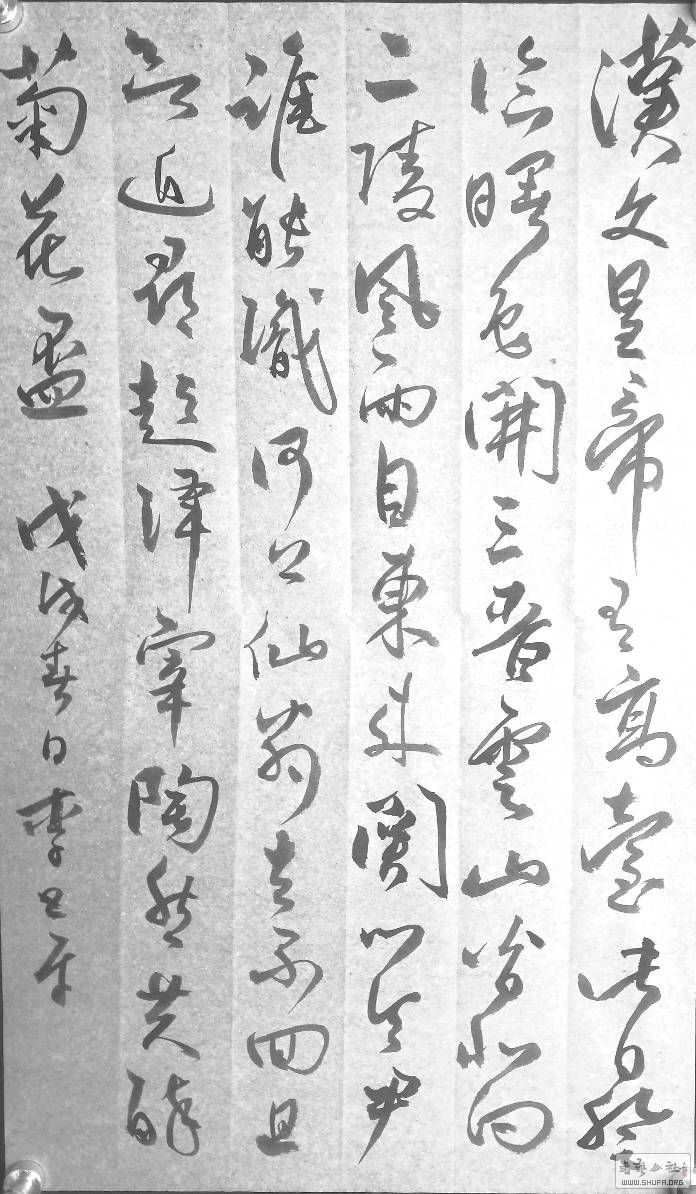 漢文皇帝有高臺此日登
臨曙色開三晉雲山皆北向
二陵風雨自東來關門令尹
誰能識河上仙翁去不回且
欲近尋彭澤宰陶然共醉
菊花盃 戊戌春日李
WWW.SHUFA.ORG